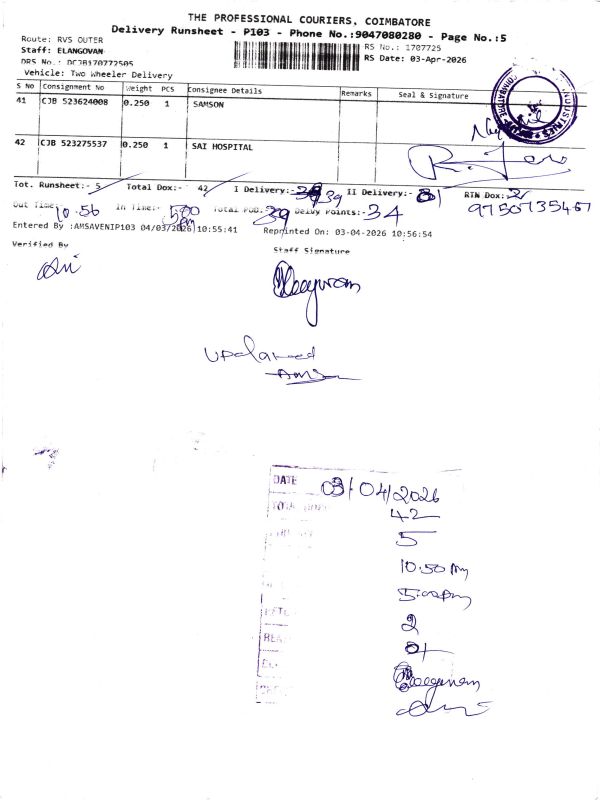 THE PROFESSIONAL COURIERS, COIMBATORE
Delivery Runsheet - P103 - Phone No.:9047080280 - Page No.:5
Route: RVS OUTER
RS No.: 1707725
Staff: ELANGOVAN
RS Date: 03-Apr-2026
DRS No.: DCJB170772505
Vehicle: Two Wheeler Delivery
S No Consignment No Weight PCS Consignee Details Remarks Seal & Signature
41 CJB 523624008 0.250 1 SAMSON
COIMBATORE INDUSTRIES
42 CJB 523275537 0.250 1 SAI HOSPITAL
Tot. Runsheet:- 5 Total Dox:- 42 I Delivery:- 39 II Delivery:- RTN Dox:- 2
9750735467
Out Time:- 10.56 In Time:- 5.00 pm Total POD: 39 Delby Points:- 34
Entered By :AMSAVENIP103 04/03/2026 10:55:41 Reprinted On: 03-04-2026 10:56:54
Verified By
Staff Signature
DATE 03/04/2026
42
5
10.50 Am
5.00pm
2